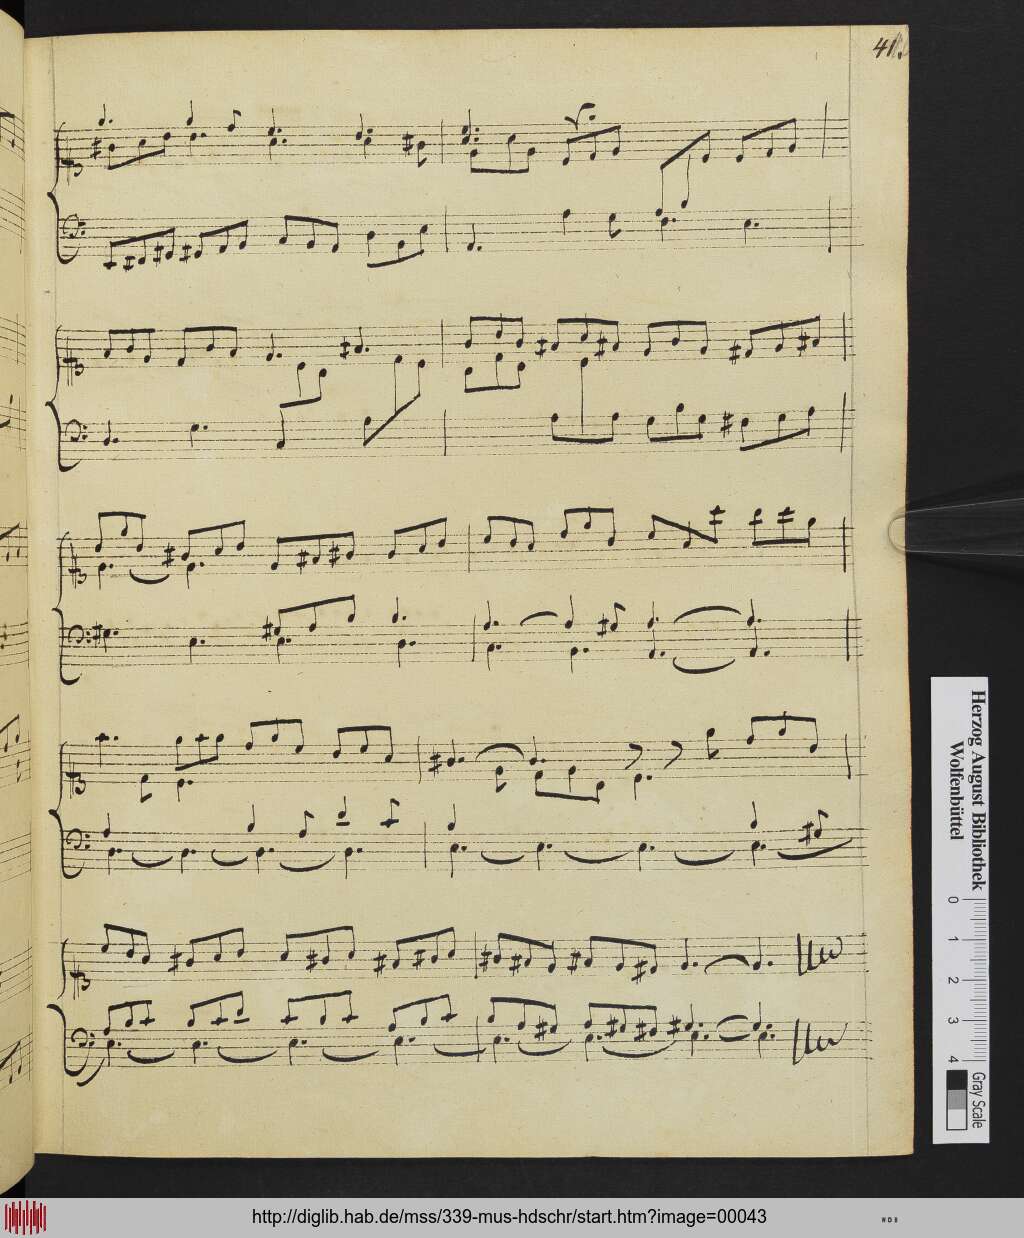 41.
Herzog August Bibliothek
Wolfenbüttel
0 1 2 3 4
Gray Scale
http://diglib.hab.de/mss/339-mus-hdschr/start.htm?image=00043